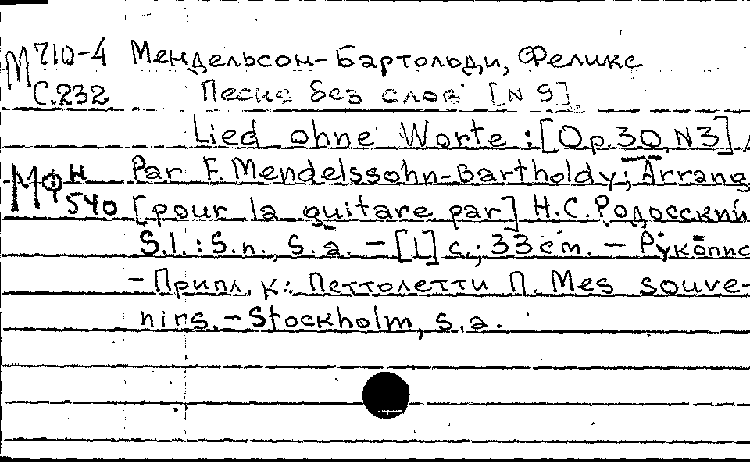 М 710-4 Мендельсон-Бартольди, Феликс
С.232 Песня без слов [N 9]
Lied ohne Worte : [Op.30, N3] /
Par F. Mendelssohn-Bartholdy; Arrang
МФ Н 540 [pour la guitare par] Н.С.Родосский
S.l. : S.n., s.a. - [1] с.; 33 cm. - Рукопис
- Припл. к: Петтолетти П. Mes souve-
nirs. - Stockholm, s.a.